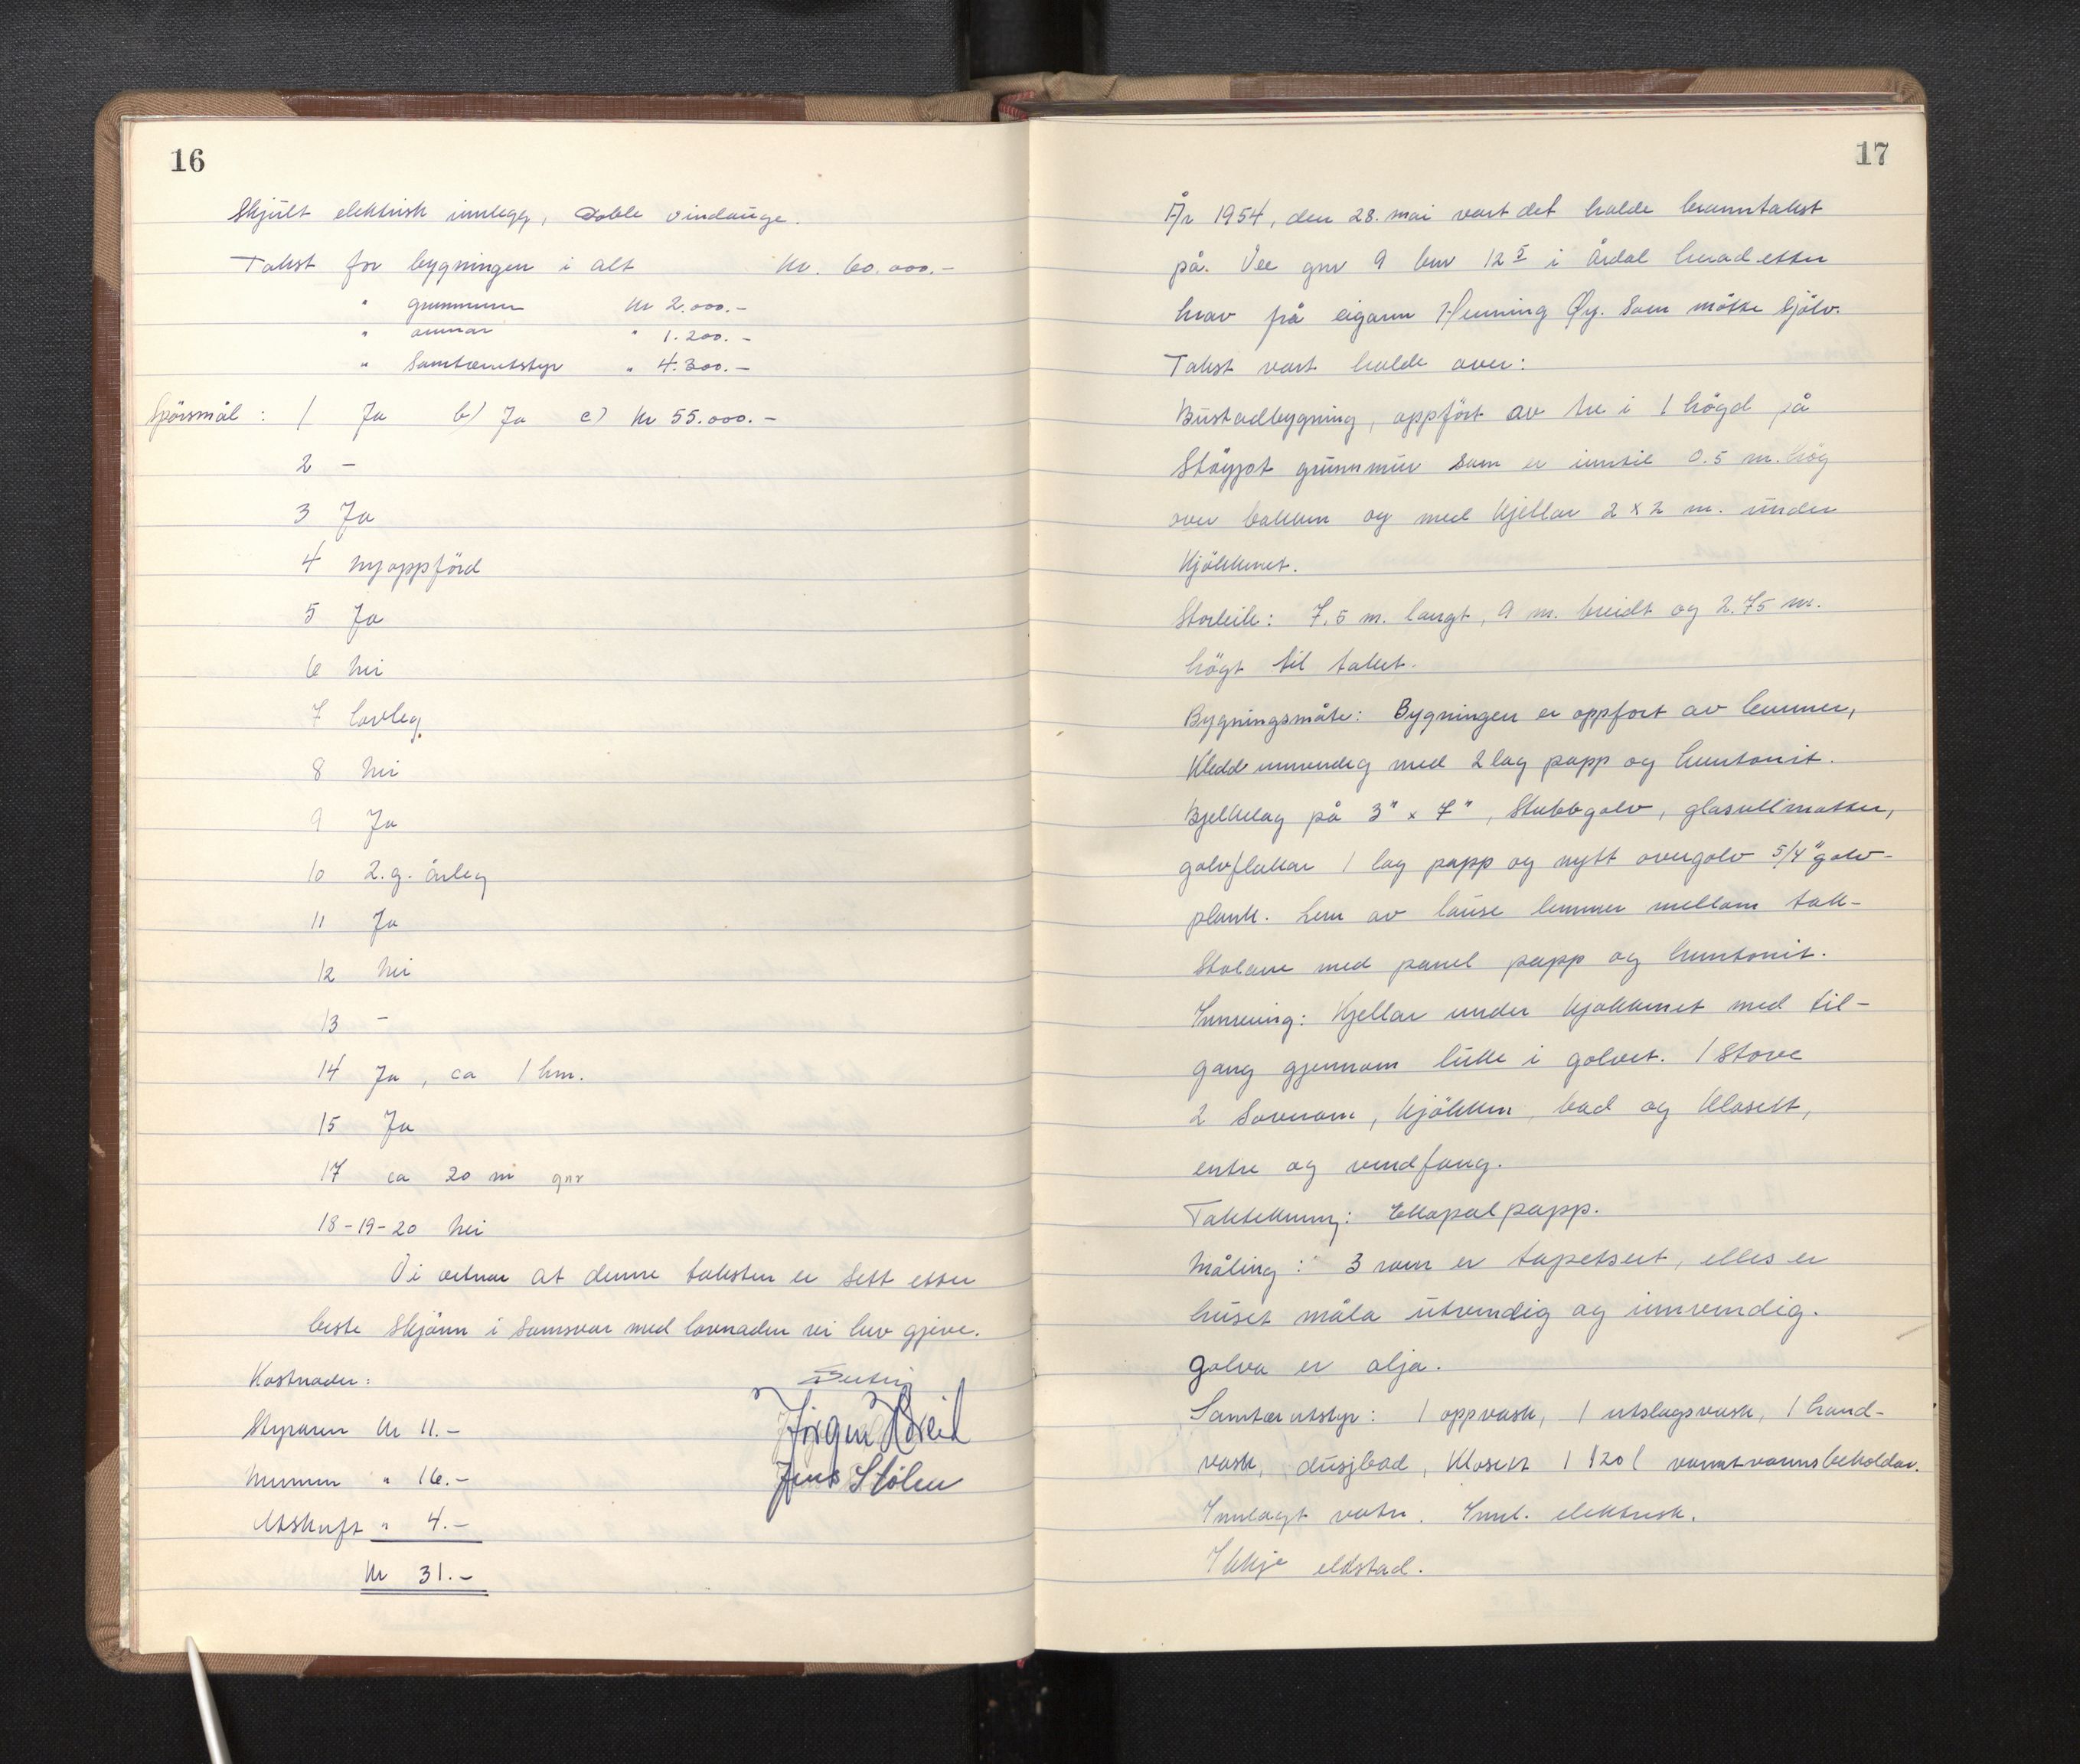 16
Skjult elektrisk innlegg, Doble vindauge.
Takst for bygningen i alt Kr. 60.000.-
" grunnmuren Kr 2.000.-
" omnar " 1.200.-
" Sanitærutstyr " 4.300.-
Spörsmål : 1 Ja b) Ja c) Kr 55.000.-
2 -
3 Ja
4 nyoppförd
5 Ja
6 Nei
7 Lovleg
8 Nei
9 Ja
10 2.g. årleg
11 Ja
12 Nei
13 -
14 Ja, ca 1 km.
15 Ja
17 ca 20 m
18-19-20 Nei
Vi vitnar at denne taksten er sett etter
beste skjönn i samsvar med lovnaden vi hev gjeve.
Kostnader:
Styraren Kr 11.-
Nemnen " 16.-
Jens Stölen
Utskrift " 4.-
Kr 31.-
17
År 1954, den 28. mai vart det halde branntakst
på. Vee gnr 9 bnr 12 5 i Årdal herad etter
krav frå eigaren Henning Øy. Som mötte Sjölv.
Takst vart halde over:
Bustadbygning, oppfört av tre i 1 högd på
Stöypt grunnmur som er inntil 0.5 m. hög
over bakken og med Kjellar 2 x 2 m. under
Kjökkenet.
Storleik: 7.5 m. langt, 9 m. breidt og 2.75 m.
högt til taket.
Bygningsmåte: Bygningen er oppfort av lemmer,
Kledd innvendig med 2 lag papp og huntonit.
Bjelkelag på 3" x 7", Stubbgolv, glasullmatter,
golvflakar 1 lag papp og nytt overgolv 5/4" golv-
plank. Lem av lause lemmer mellom tak-
Stolane med panel papp og huntonit.
Innreiing: Kjellar under Kjøkkenet med til-
gang gjennom luke i golvet. 1 Stove
2 Soverom, Kjökken, bad og Klosett,
entre og vindfang.
Taktekking: Ekapal papp.
Måling: 3 rom er tapetsert, elles er
huset måla utvendig og innvendig.
golva er olja.
Sanitærutstyr: 1 oppvask, 1 utslagsvask, 1 hand-
vask, dusjbad, Klosett 1 120 l varmtvannsbeholdar.
Innlagt vatn. Innl. elektrisk.
Ikkje eldstad.